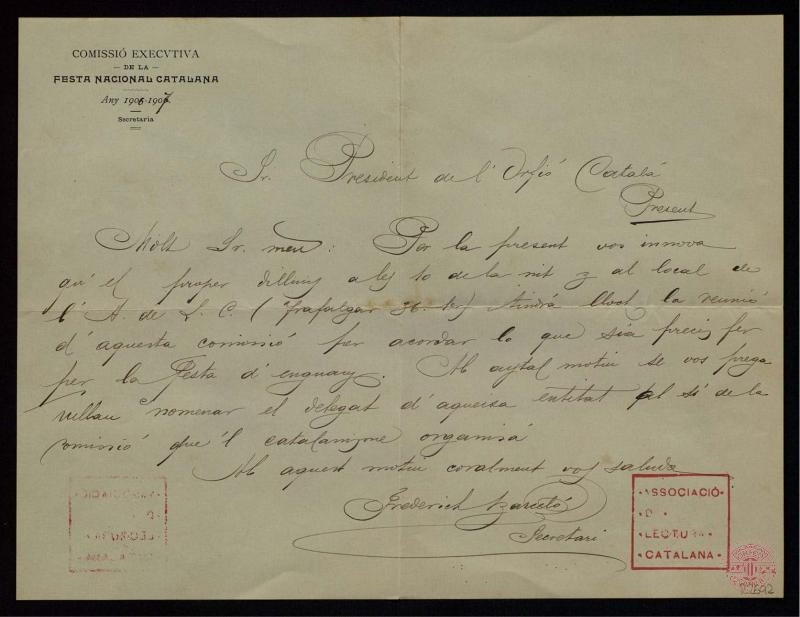 COMISSIÓ EXECVTIVA
— DE LA —
FESTA NACIONAL CATALANA
Any 1906-1907
Secretaria
Sr. President de l' Orfeó Catalá
Present
Molt Sr. meu: Per la present vos innova
qu' el proper dilluns a les 10 de la nit y al local de
l' A. de L. C. (Trafalgar 36. ) tindrá lloch la reunió
d' aquesta comissió per acordar lo que sia precis fer
per la Festa d' enguany. Ab aytal motiu se vos prega
vullau nomenar el delegat d' aqueixa entitat al sí de la
comissió que 'l catalanisme organisá
Ab aquest motiu coralment vos saluda
Frederich Barceló
Secretari
ASSOCIACIÓ
D
LECTURA
CATALANA